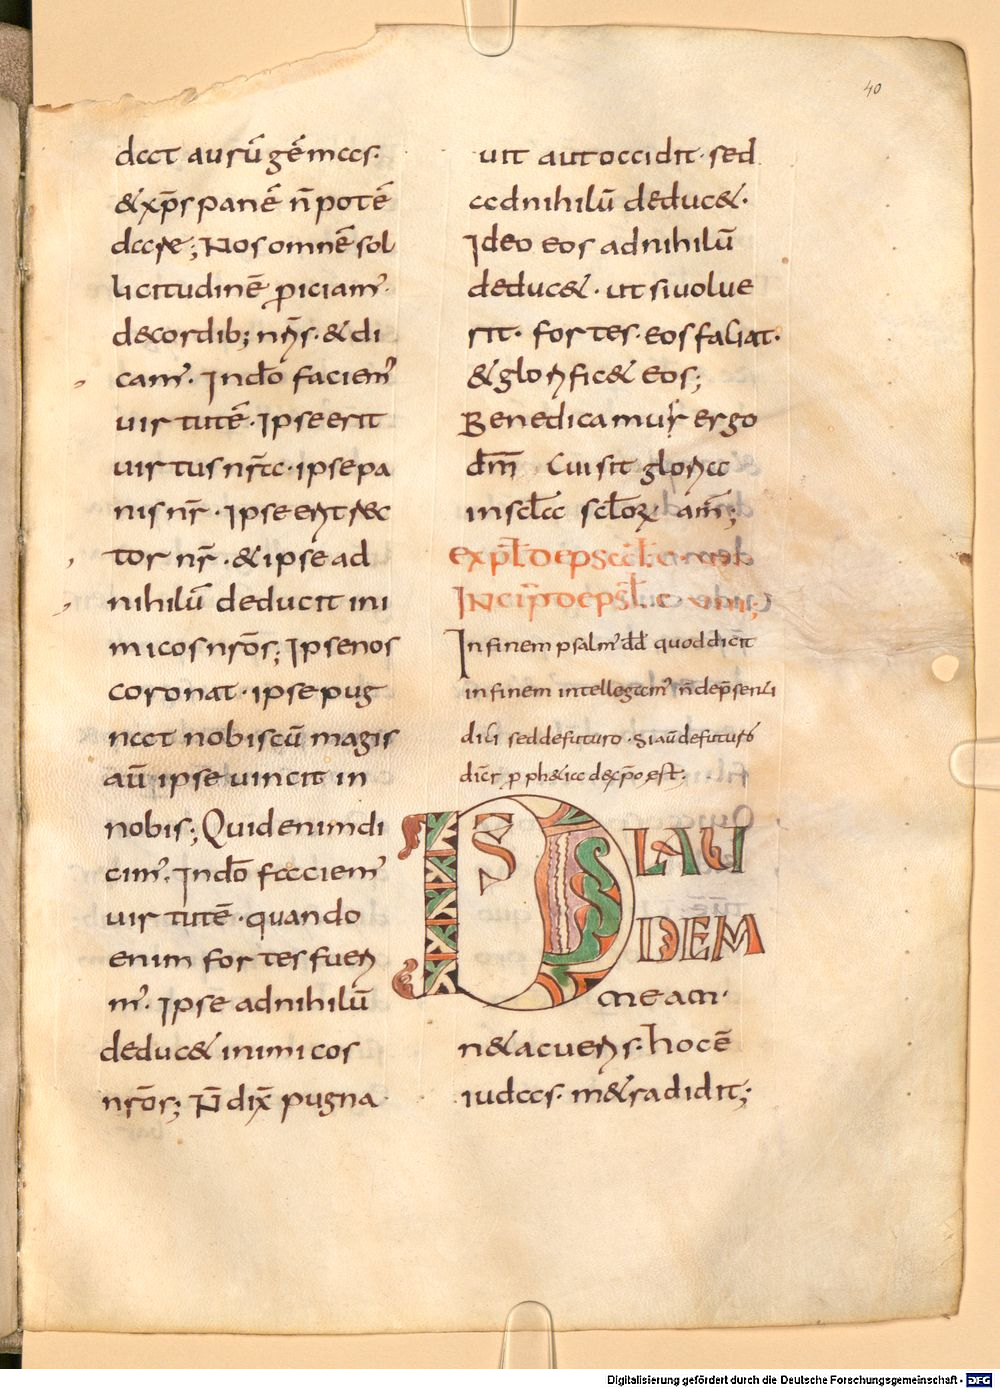 40
dact aurū gēmccs·
&xp̄s panē n̄ potē
dare; Nos omnē sol
licitudinē p̄iciam'·
de cordib; nr̄is·& di
cam'· In dō faciem'
uirtutē· Ipse erit
uirtus nr̄a· ipse pa
nis nr̄· Ipse erit rec
tor nr̄·& ipse ad
nihilū deducit ini
micos nrōs; Ipse nos
coronat· ipse pug
nat nobiscū magis
aū ipse uincit in
nobis; Quid enim di
cim'· In dō faciem'
uirtutē· quando
enim fortes fueri
m'· Ipse adnihilū
deduc& inimicos
nrōs; N̄ dix̄ pugna
uit aut occidit· sed
ad nihilū deduc&·
Ideo eos ad nihilū
deduc&· ut si uolue
rit· fortes· eos faciat·
& glorific& eos;
Benedicamus ergo
dm̄ Cui sit gloria
in scla sclorꝝ am̄;
In finem psalm' dd̄ quod dicit
in finem intellegam' n̄ de p̄senti
dici sed de futuro· Si aū de futuris
dic̄ p̄ ph&ica de xp̄o est;
DS LAU
DEM
meam·
n& acueris· hoc ē
iudas· m& radidit;
Digitalisierung gefördert durch die Deutsche Forschungsgemeinschaft · DFG